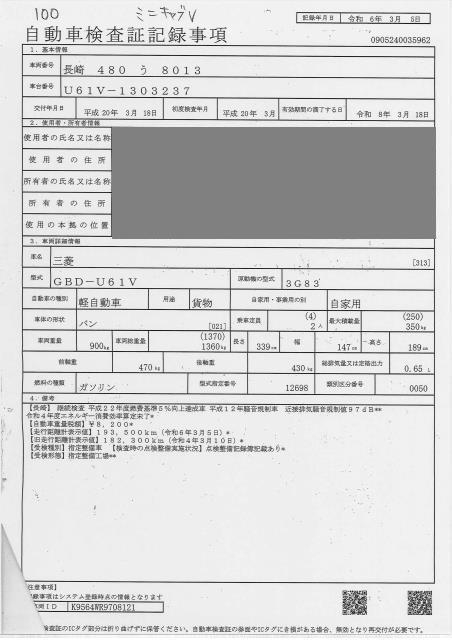 100 ミニキャブV
記録年月日 令和 6年 3月 5日
自動車検査証記録事項
0905240035962
1. 基本情報
車両番号 長崎 480 う 8013
車台番号 U61V-1303237
交付年月日 平成20年 3月 18日 初度検査年月 平成20年 3月 有効期間の満了する日 令和 8年 3月 18日
2. 使用者・所有者情報
使用者の氏名又は名称
使用者の住所
所有者の氏名又は名称
所有者の住所
使用の本拠の位置
3. 車両詳細情報
車名 三菱 [313]
型式 GBD-U61V 原動機の型式 3G83
自動車の種別 軽自動車 用途 貨物 自家用・事業用の別 自家用
車体の形状 バン [021] 乗車定員 (4) 2人 最大積載量 (250) 350kg
車両重量 900kg 車両総重量 (1370) 1360kg 長さ 339cm 幅 147cm 高さ 189cm
前軸重 470kg 後軸重 430kg 総排気量又は定格出力 0.65 L
燃料の種類 ガソリン 型式指定番号 12698 類別区分番号 0050
4. 備考
【長崎】 継続検査 平成22年度燃費基準5%向上達成車 平成12年騒音規制車 近接排気騒音規制値97dB**
令和4年度エネルギー消費効率算定未了*
【自動車重量税額】¥8,200*
【走行距離計表示値】193,500km(令和6年3月5日)*
【旧走行距離計表示値】182,300km(令和4年3月10日)*
【受検種別】指定整備車 【検査時の点検整備実施状況】点検整備記録簿記載あり*
【受検形態】指定整備工場**
注意事項】
記録事項はシステム登録時点の情報となります
車両ID K9564WR9708121
検査証のICタグ部分は折り曲げずに保管ください。自動車検査証の券面やICタグにき損がある場合、無効となり再交付が必要です。